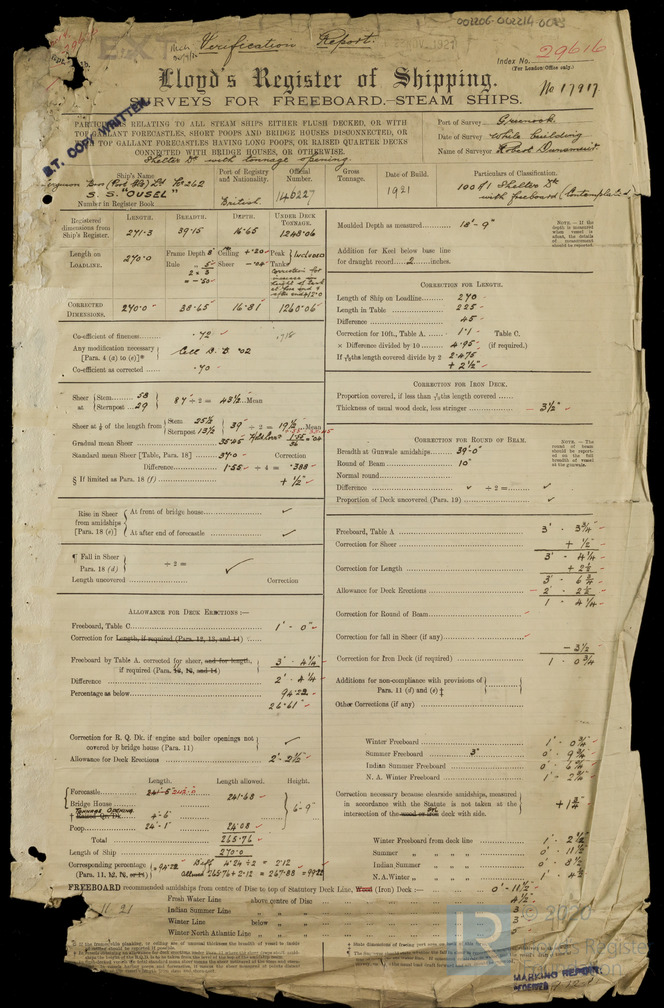 002206-002214-0053
Verification Report.
NOV. 1921
Index No. 29616
(For London Office only.)
No 17917
Lloyd's Register of Shipping.
SURVEYS FOR FREEBOARD.—STEAM SHIPS.
B.T. COPY WRITTEN
PARTICULARS RELATING TO ALL STEAM SHIPS EITHER FLUSH DECKED, OR WITH
TOP GALLANT FORECASTLES, SHORT POOPS AND BRIDGE HOUSES DISCONNECTED, OR
TOP GALLANT FORECASTLES HAVING LONG POOPS, OR RAISED QUARTER DECKS
CONNECTED WITH BRIDGE HOUSES, OR OTHERWISE.
Shelter Dk with tonnage opening.
Port of Survey Greenock
Date of Survey While building
Name of Surveyor Robert Dunsmuir
Ship's Name
Port of Registry and Nationality.
Official Number
Gross Tonnage.
Date of Build.
Particulars of Classification.
Ferguson Bros (Port Glas) Ltd No 262
S.S. "OUSEL"
Number in Register Book
British.
146227
1921
100 A1 Shelter Dk
with freeboard (Contemplated)
Registered dimensions from Ship's Register.
LENGTH. BREADTH. DEPTH. UNDER DECK TONNAGE.
271·3 39·15 16·65 1248·06
Length on LOADLINE. 270·0
Frame Depth 8
Rule 5
2 × 3
= -·50
Ceiling +·20
Sheer -·04
Peak Tanks Included
CORRECTED DIMENSIONS. 270·0 38·65 16·81 1260·06
Moulded Depth as measured 18'-9"
NOTE.—If the depth is measured when vessel is afloat, the details of measurement should be reported.
Addition for Keel below base line
for draught record 2 inches.
Co-efficient of fineness ·72
Any modification necessary
[Para. 4 (a) to (e)]* Cell D. B. ·02
Co-efficient as corrected ·70
CORRECTION FOR LENGTH.
Length of Ship on Loadline 270
Length in Table 225
Difference 45
Correction for 10ft., Table A. 1·1 Table C.
× Difference divided by 10 4·95 (if required.)
If 6/10ths length covered divide by 2 2·475
+ 2½"
Sheer at Stem 58
Sternpost 29
87 ÷ 2 = 43½ Mean
Sheer at ⅛ of the length from Stem 25½
Sternpost 13½
39 ÷ 2 = 19½ Mean
Gradual mean Sheer 35·45
Standard mean Sheer [Table, Para. 18] 37·0 Correction
Difference 1·55 ÷ 4 = ·388
§ If limited as Para. 18 (f) + ½"
CORRECTION FOR IRON DECK.
Proportion covered, if less than 7/10ths length covered
Thickness of usual wood deck, less stringer 3½
CORRECTION FOR ROUND OF BEAM.
Breadth at Gunwale amidships 39'-0"
Round of Beam 10"
Normal round
Difference ÷ 2 =
Proportion of Deck uncovered (Para. 19)
NOTE.—The round of beam should be reported on the full breadth of vessel at the gunwale.
Rise in Sheer from amidships [Para. 18 (e)]
At front of bridge house
At after end of forecastle
¶ Fall in Sheer
Para. 18 (d) ÷ 2 =
Length uncovered Correction
Freeboard, Table A 3' - 3¾"
Correction for Sheer + ½"
3' - 4¼
Correction for Length + 2½
3' - 6¾
Allowance for Deck Erections 2' - 2½
1 - 4¼
Correction for Round of Beam
Correction for fall in Sheer (if any)
- 3½
Correction for Iron Deck (if required) 1 - 0¾
Additions for non-compliance with provisions of
Para. 11 (d) and (e) ‡
Other Corrections (if any)
ALLOWANCE FOR DECK ERECTIONS:—
Freeboard, Table C. 1' - 0"
Correction for Length, if required (Para. 12, 13, and 14)
Freeboard by Table A. corrected for sheer, and for length,
if required (Para. 12, 13, and 14) 3' - 4¼
Difference 2' - 4¼
Percentage as below 94·22
26·61
Correction for R. Q. Dk. if engine and boiler openings not
covered by bridge house (Para. 11)
Allowance for Deck Erections 2'-2½"
Length. Length allowed. Height.
Forecastle
Bridge House 241·68 6'-9"
TONNAGE OPENING
Raised Qr. Dk. 4'-6"
Poop 24'-1" 24·08
Total 265·76
Length of Ship 270·0
Corresponding percentage
(Para. 11, 12, 13, or 14) = 94·22
Diff 4·24 ÷ 2 = 2·12
Allowed 265·76 + 2·12 = 267·88
Winter Freeboard 1' - 0¾"
Summer Freeboard 3" 0' - 9¾
Indian Summer Freeboard 0' - 6¾
N. A. Winter Freeboard 1' - 2¾
Correction necessary because clearside amidships, measured
in accordance with the Statute is not taken at the
intersection of the wood or iron deck with side. +1¾"
Winter Freeboard from deck line 1' - 2½
Summer 0' - 11½
Indian Summer 0' - 8½
N. A. Winter 1' - 4½
FREEBOARD recommended amidships from centre of Disc to top of Statutory Deck Line, Wood (Iron) Deck :— 0' - 11½
Fresh Water Line above centre of Disc 4½
Indian Summer Line 3
Winter Line below 3
Winter North Atlantic Line 5
11 21
LR
© 2020
Lloyd's Register
Foundation
MARKING REPORT
RECEIVED